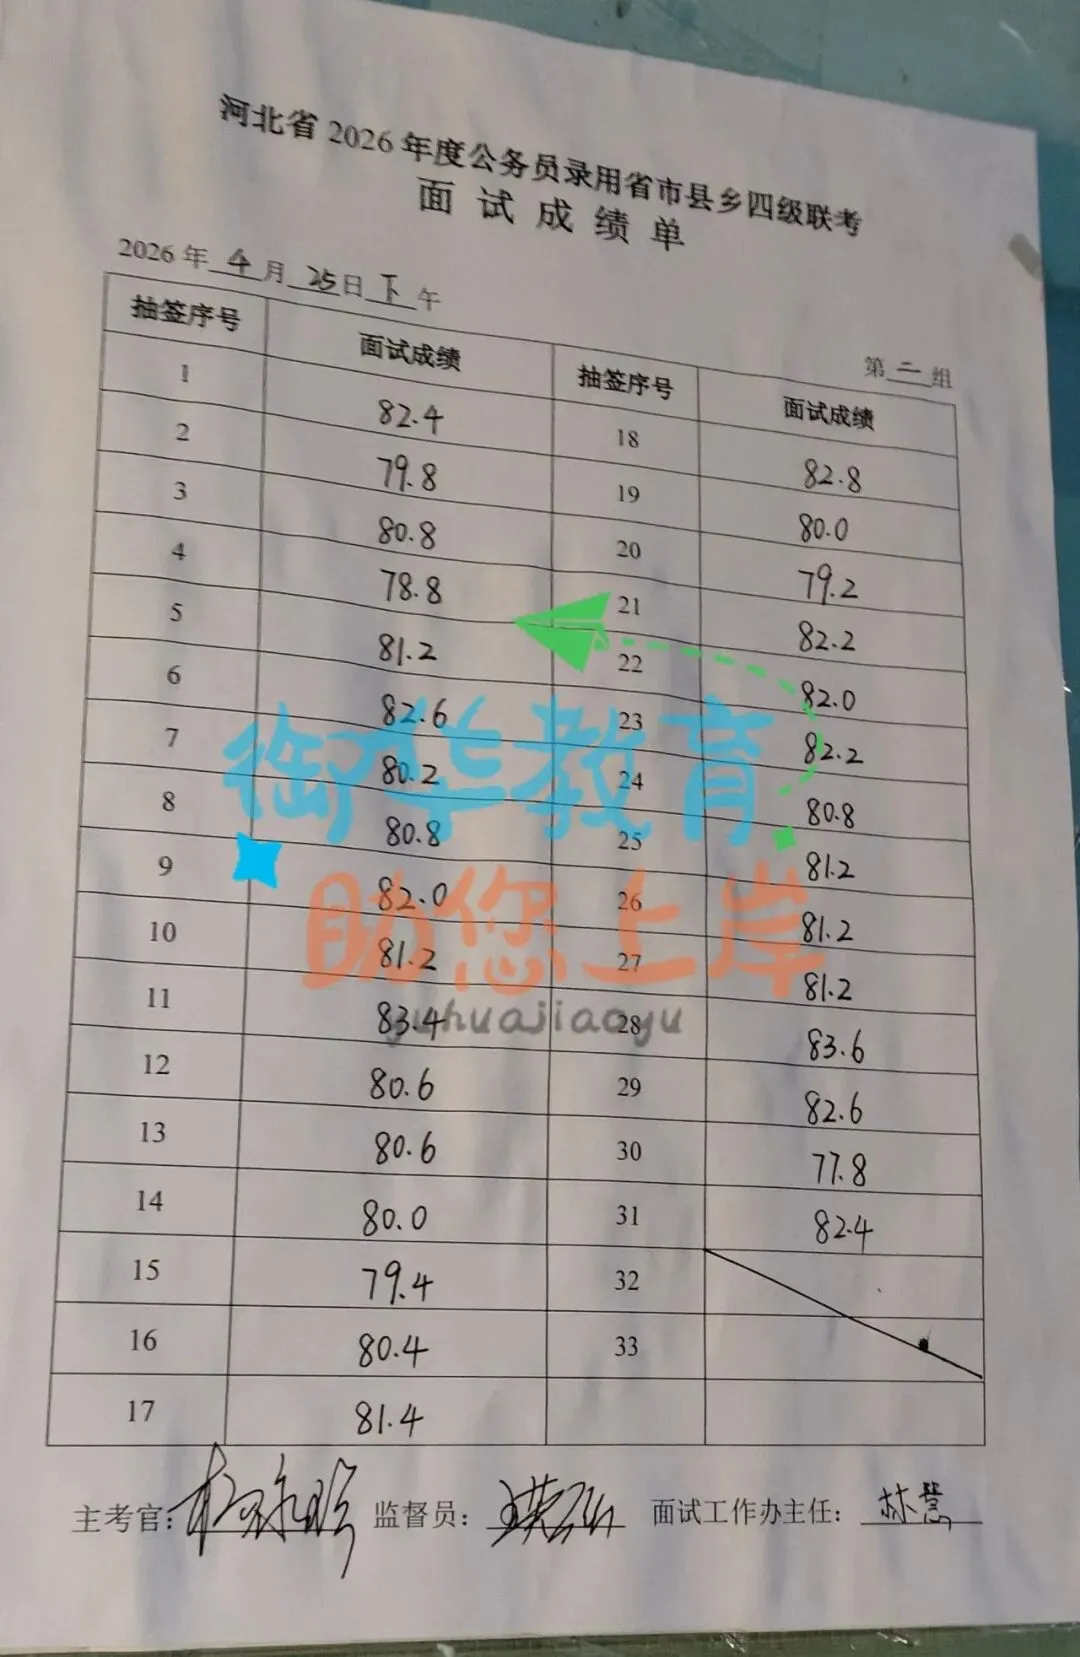 河北省 2026 年度公务员录用省市县乡四级联考
面 试 成 绩 单
2026 年 4 月 25 日 下 午
第 二 组
抽签序号 面试成绩 抽签序号 面试成绩
1 82.4 18 82.8
2 79.8 19 80.0
3 80.8 20 79.2
4 78.8 21 82.2
5 81.2 22 82.0
6 82.6 23 82.2
7 80.2 24 80.8
8 80.8 25 81.2
9 82.0 26 81.2
10 81.2 27 81.2
11 83.4 28 83.6
12 80.6 29 82.6
13 80.6 30 77.8
14 80.0 31 82.4
15 79.4 32
16 80.4 33
17 81.4
御华教育
助您上岸
yuhuajiaoyu
主考官： 监督员： 面试工作办主任： 林慧